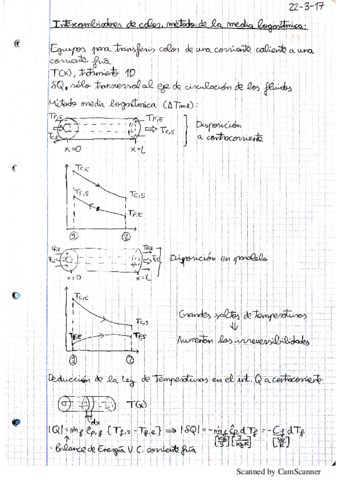 22-3-17
Intercambiadores de calor, método de la media logarítmica:
Equipos para transferir calor de una corriente caliente a una
corriente fría
T(x), tratamiento 1D
δQ, sólo transversal al eje de circulación de los fluidos
Método media logarítmica (ΔTmel):
TF,S
TF,E
TC,S
x=0
x=L
Disposición
a contracorriente
TC,E
TF,S
TC,S
TF,E
① ②
x=0
x=L
Disposición en paralelo
TC,E
TC,S
TF,S
TF,E
① ②
Grandes saltos de temperaturas
⇓
Aumentan las irreversibilidades
Deducción de la ley de Temperaturas en el int. Q a contracorriente
dx
T(x)
|Q̇| = ṁf Cp,f [Tf,s - Tf,e] ⇒ |δQ̇| = -ṁf Cp dTf = -Cf dTf
Balance de Energía V.C. corriente fría
Scanned by CamScanner